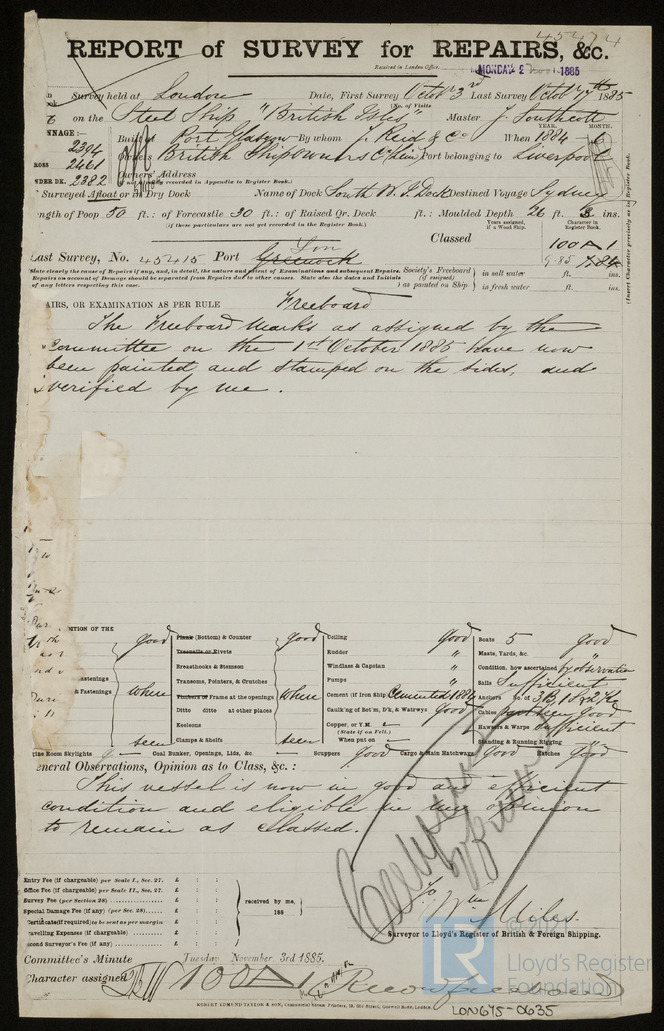 45474
REPORT of SURVEY for REPAIRS, &c.
Received in London Office, MONDAY 2 NOV 1885
Survey held at London Date, First Survey Octob 3rd Last Survey Octob 7th 1885
(No. of Visits
on the Steel Ship "British Isles" Master J. Southcott
YEAR. MONTH.
NNAGE:— Built at Port Glasgow By whom J. Reid & Co When 1884
2394
Owners British Shipowners Co (Lim) Port belonging to Liverpool
ROSS 2461
Owners' Address
(If not already recorded in Appendix to Register Book.)
NDER DK. 2382
Surveyed Afloat or in Dry Dock Name of Dock South W. I. Dock Destined Voyage Sydney
ength of Poop 50 ft.: of Forecastle 30 ft.: of Raised Qr. Deck ft.: Moulded Depth 26 ft. 3 ins.
(if these particulars are not yet recorded in the Register Book.)
Years assigned, if a Wood Ship. Character in Register Book.
Classed 100 A 1
Last Survey, No. 45415 Port Lon Greenock 9.85 7.84
State clearly the cause of Repairs if any, and, in detail, the nature and extent of Examinations and subsequent Repairs.
Repairs on account of Damage should be separated from Repairs due to other causes. State also the dates and Initials
of any letters respecting this case.
Society's Freeboard (if assigned) as painted on Ship
in salt water ft. ins.
in fresh water ft. ins.
(Insert Character precisely as in Register Book.
AIRS, OR EXAMINATION AS PER RULE Freeboard
The Freeboard Marks as assigned by the
Committee on the 1st October 1885 have now
been painted and stamped on the sides, and
verified by me.
ITION OF THE
good
where
seen
astenings
& Fastenings
Plank (Bottom) & Counter
Treenails or Rivets
Breasthooks & Stemson
Transoms, Pointers, & Crutches
Timbers or Frame at the openings
Ditto ditto at other places
Keelsons
Clamps & Shelfs
good
where
seen
Ceiling good
Rudder "
Windlass & Capstan "
Pumps "
Cement (if Iron Ship) Cemented 1884
Caulking of Bot'm, D'k, & Watrwys good
Copper, or Y.M.
(State if on Felt.)
When put on
Boats 5 good
Masts, Yards, &c.
Condition, how ascertained by observation
Sails Sufficient
Anchors No. of 3B, 1S & 2K
Cables good
Hawsers & Warps Sufficient
Standing & Running Rigging "
gine Room Skylights Coal Bunker, Openings, Lids, &c. Scuppers good Cargo & Main Hatchways Good Hatches Good
eneral Observations, Opinion as to Class, &c.:
This vessel is now in good and efficient
condition and eligible in my opinion
to remain as Classed.
Entry Fee (if chargeable) per Scale I., Sec. 27. £ : :
Office Fee (if chargeable) per Scale II., Sec. 27. £ : :
Survey Fee (per Section 28) £ : :
Special Damage Fee (if any) (per Sec. 28) £ : :
Certificate (if required) (to be sent as per margin £ : :
ravelling Expenses (if chargeable) £ : :
econd Surveyor's Fee (if any) £ : :
received by me,
188
Wm Miles.
Surveyor to Lloyd's Register of British & Foreign Shipping.
Committee's Minute Tuesday November 3rd 1885.
Character assigned 100 A 1
ROBERT EDMUND TAYLOR & SON, Commercial Steam Printers, 19, Old Street, Goswell Road, London.
© 2021
Lloyd's Register
Foundation
LON675-0635